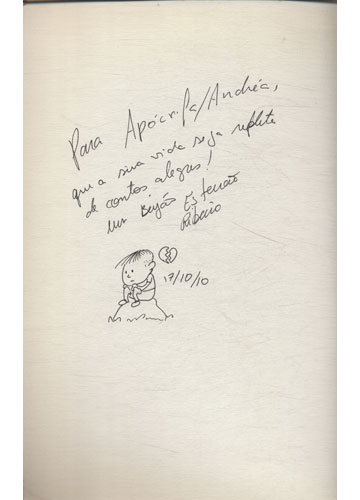 Para Apócrifa/Andréa,
que a sua vida seja repleta
de contos alegres!
um Beijão Estevão
Ribeiro
17/10/10